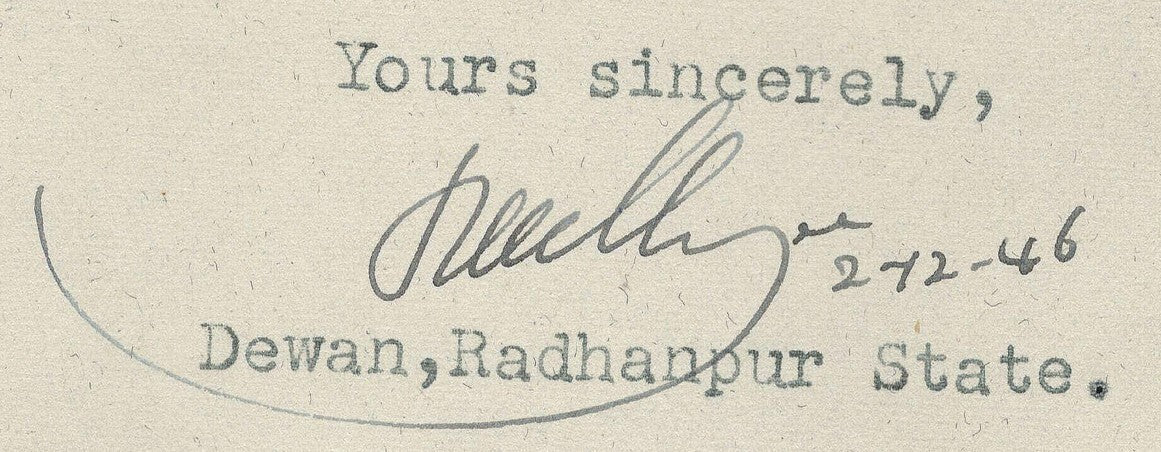 Yours sincerely,
2-12-46
Dewan,Radhanpur State.